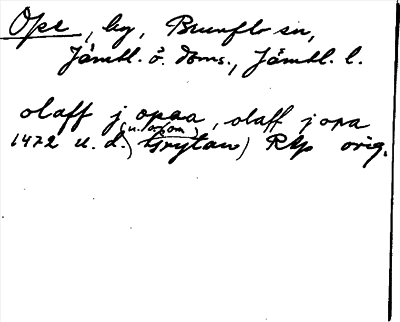 Ope, by, Brunflo sn,
Jämtl. ö. doms., Jämtl. l.
olaff j opaa, olaff j opa
(u. opom)
1472 u. d. (Grytan) RAp orig.